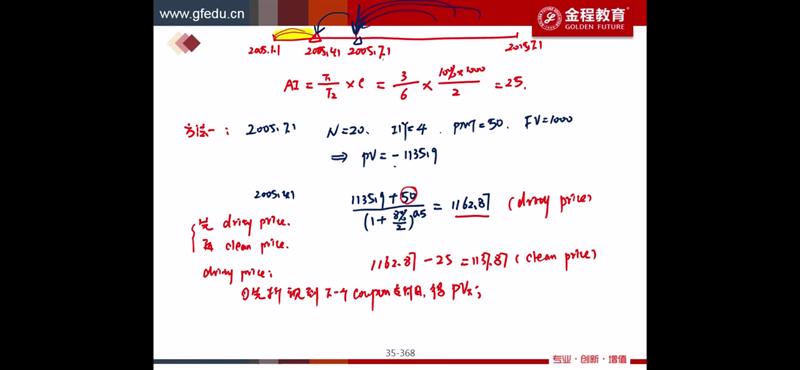 www.gfedu.cn
金程教育
GOLDEN FUTURE
2005.1.1 2005.4.1 2005.7.1 2015.7.1
AI = T₁/T₂ × C = 3/6 × 10%×1000/2 = 25.
方法一: 2005.7.1 N=20. I/Y=4. PMT=50. FV=1000
⇒ PV = -1135.9
2005.4.1 (1135.9 + 50)/(1 + 8%/2)^0.5 = 1162.87 (dirty price)
先 dirty price.
再 clean price.
1162.87 - 25 = 1137.87 (clean price)
dirty price:
①先折现到下一个 coupon 支付日, 得 PV₁;
35-368
专业·创新·增值